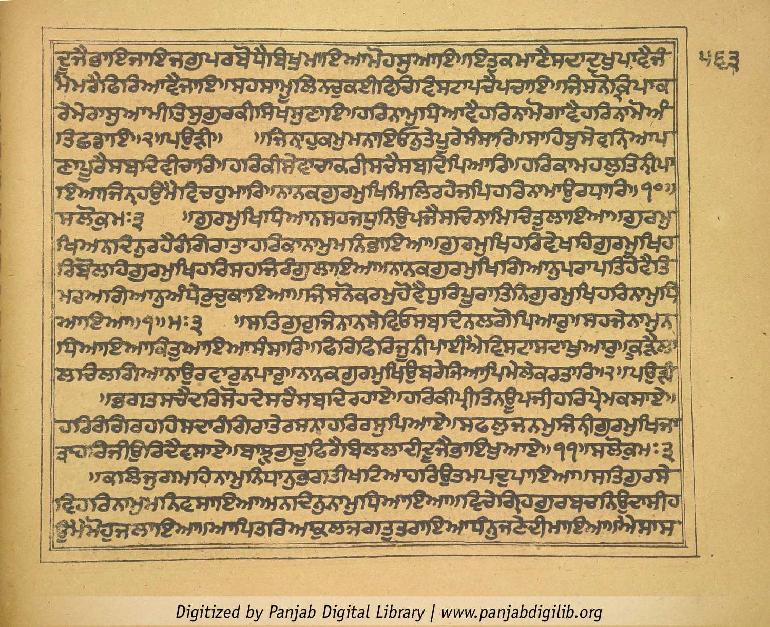 ਦੂਜੈਭਾਇਜਾਇਜਗੁਪਰਬੋਧੈਬਿਖੁਮਾਇਆਮੋਹਸੁਆਇ॥ਇਤੁਕਮਾਣੈਸਦਾਦੁਖੁਪਾਵੈਜੰ ੫੬੩
ਮੈਮਰੈਫਿਰਿਆਵੈਜਾਇ॥ਸਹਸਾਮੂਲਿਨਚੁਕਈਵਿਚਿਵਿਸਟਾਪਚੈਪਚਾਇ॥ਜਿਸਨੋਕ੍ਰਿਪਾਕ
ਰੇਮੇਰਾਸੁਆਮੀਤਿਸੁਗੁਰਕੀਸਿਖਸੁਣਾਇ॥ਹਰਿਨਾਮੁਧਿਆਵੈਹਰਿਨਾਮੋਗਾਵੈਹਰਿਨਾਮੋਅੰ
ਤਿਛਡਾਇ॥੨॥ਪਉੜੀ॥ ਜਿਨਾਹੁਕਮੁਮਨਾਇਓਨੁਤੇਪੂਰੇਸੰਸਾਰਿ॥ਸਾਹਿਬੁਸੇਵਨਿਆਪ
ਣਾਪੂਰੈਸਬਦਿਵੀਚਾਰਿ॥ਹਰਿਕੀਸੇਵਾਚਾਕਰੀਸਚੈਸਬਦਿਪਿਆਰਿ॥ਹਰਿਕਾਮਹਲੁਤਿਨੀਪਾ
ਇਆਜਿਨਹਉਮੈਵਿਚਹੁਮਾਰਿ॥ਨਾਨਕਗੁਰਮੁਖਿਮਿਲਿਰਹੇਜਪਿਹਰਿਨਾਮਾਉਰਧਾਰਿ॥੧੦॥
ਸਲੋਕੁਮਃ੩ ॥ਗੁਰਮੁਖਿਧਿਆਨਸਹਜਧੁਨਿਉਪਜੈਸਚਿਨਾਮਿਚਿਤੁਲਾਇਆ॥ਗੁਰਮੁ
ਖਿਅਨਦਿਨੁਰਹੈਰੰਗਿਰਾਤਾਹਰਿਕਾਨਾਮੁਮਨਿਭਾਇਆ॥ਗੁਰਮੁਖਿਹਰਿਵੇਖਹਿਗੁਰਮੁਖਿਹ
ਰਿਬੋਲਹਿਗੁਰਮੁਖਿਹਰਿਸਹਜਿਰੰਗੁਲਾਇਆ॥ਨਾਨਕਗੁਰਮੁਖਿਗਿਆਨੁਪਰਾਪਤਿਹੋਵੈਤਿ
ਮਰਅਗਿਆਨੁਅੰਧੇਰੁਚੁਕਾਇਆ॥ਜਿਸਨੋਕਰਮੁਹੋਵੈਧੁਰਿਪੂਰਾਤਿਨਿਗੁਰਮੁਖਿਹਰਿਨਾਮੁਧਿ
ਆਇਆ॥੧॥ਮਃ੩ ॥ਸਤਿਗੁਰੁਜਿਨਾਨਸੇਵਿਓਸਬਦਿਨਲਗੋਪਿਆਰੁ॥ਸਹਜੇਨਾਮੁਨ
ਧਿਆਇਆਕਿਤੁਆਇਆਸੰਸਾਰਿ॥ਫਿਰਿਫਿਰਿਜੂਨੀਪਾਈਐਵਿਸਟਾਸਦਾਖੁਆਰੁ॥ਕੂੜੈਲਾ
ਲਚਿਲਗਿਆਨਉਰਵਾਰੁਨਪਾਰੁ॥ਨਾਨਕਗੁਰਮੁਖਿਉਬਰੇਜਿਆਪਿਮੇਲੇਕਰਤਾਰਿ॥੨॥ਪਉੜੀ
॥ਭਗਤਸਚੈਦਰਿਸੋਹਦੇਸਚੈਸਬਦਿਰਹਾਏ॥ਹਰਿਕੀਪ੍ਰੀਤਿਤਿਨਊਪਜੀਹਰਿਪ੍ਰੇਮਕਸਾਏ॥
ਹਰਿਰੰਗਿਰਹਹਿਸਦਾਰੰਗਿਰਾਤੇਰਸਨਾਹਰਿਰਸੁਪਿਆਏ॥ਸਫਲੁਜਨਮੁਜਿਨੀਗੁਰਮੁਖਿਜਾ
ਤਾਹਰਿਜੀਉਰਿਦੈਵਸਾਏ॥ਬਾਝੁਗੁਰੂਫਿਰੈਬਿਲਲਾਦੀਦੂਜੈਭਾਇਖੁਆਏ॥੧੧॥ਸਲੋਕੁਮਃ੩
॥ਕਲਿਜੁਗਮਹਿਨਾਮੁਨਿਧਾਨੁਭਗਤੀਖਟਿਆਹਰਿਉਤਮਪਦੁਪਾਇਆ॥ਸਤਿਗੁਰਸੇ
ਵਿਹਰਿਨਾਮੁਮਨਿਵਸਾਇਆਅਨਦਿਨੁਨਾਮੁਧਿਆਇਆ॥ਵਿਚੇਗ੍ਰਿਹਗੁਰਬਚਨਿਉਦਾਸੀਹ
ਉਮੈਮੋਹੁਜਲਾਇਆ॥ਆਪਿਤਰਿਆਕੁਲਜਗਤੁਤਰਾਇਆਧੰਨੁਜਣੇਦੀਮਾਇਆ॥ਐਸਾਸ
Digitized by Panjab Digital Library | www.panjabdigilib.org